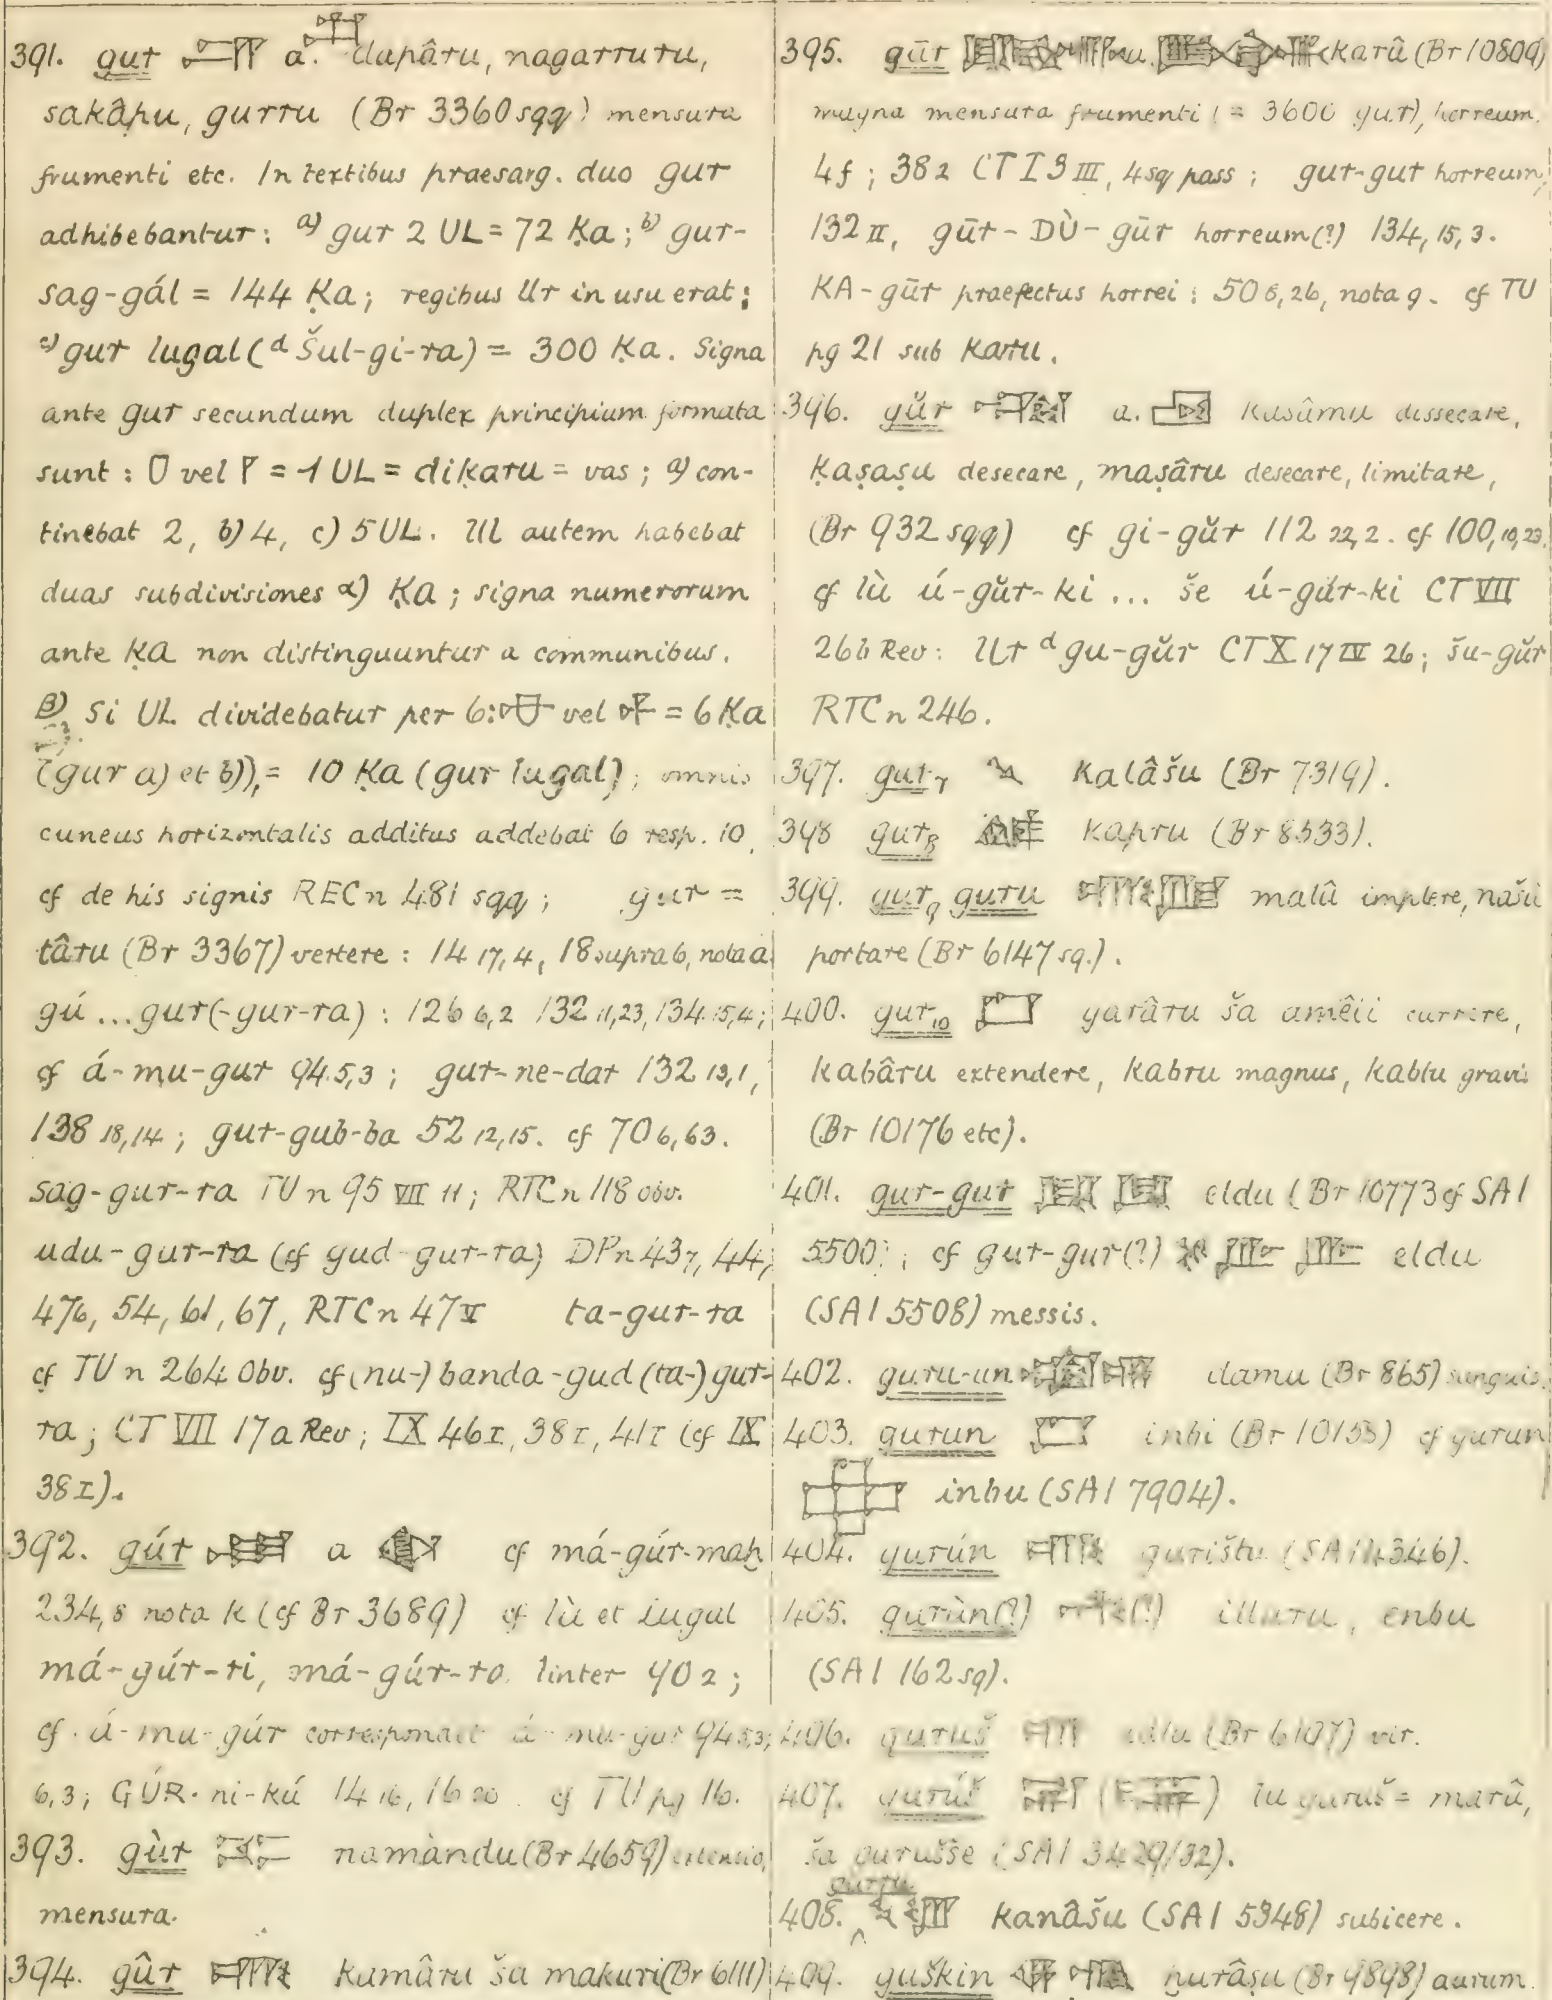 391. gur a. dapâru, nagarruru,
sakâpu, gurru (Br 3360 sqq) mensura
frumenti etc. In textibus praesarg. duo gur
adhibebantur: a) gur 2 UL = 72 Ḳa; b) gur-
sag-gál = 144 Ḳa; regibus Ur in usu erat:
c) gur lugal (ᵈ Šul-gi-ra) = 300 Ḳa. Signa
ante gur secundum duplex principium formata
sunt: vel = 1 UL = diḳaru = vas; a) con-
tinebat 2, b) 4, c) 5 UL. Ul autem habebat
duas subdivisiones α) Ḳa; signa numerorum
ante Ḳa non distinguuntur a communibus.
β) Si UL dividebatur per 6: vel = 6 Ḳa
(gur a) et b)), = 10 Ḳa (gur lugal); omnis
cuneus horizontalis additus addebat 6 resp. 10,
cf de his signis REC n 481 sqq; gur =
târu (Br 3367) vertere: 14 17,4, 18 supra 6, nota a
gú ... gur(-gur-ra): 126 6,2 132 11,23, 134 15,4;
cf á-mu-gur 94 5,3; gur-ne-dar 132 13,1,
138 18,14; gur-gub-ba 52 12,15. cf 70 6,63.
sag-gur-ra TU n 95 VIII 11; RTC n 118 obv.
udu-gur-ra (cf gud gur-ra) DP n 437, 44,
476, 54, 61, 67, RTC n 47 V ta-gur-ra
cf TU n 264 Obv. cf (nu-) banda-gud (ta-) gur-
ra; CT VII 17a Rev; IX 46 I, 38 I, 41 I (cf IX
38 I).
392. gúr a cf má-gúr-maḫ
234, 8 nota k (cf Br 3689) cf lù et lugal
má-gúr-ri, má-gúr-ra linter 40 2;
cf. á-mu-gúr correspondet á-mu-gur 94 5,3;
6,3; GÚR-ni-kú 14 16, 16 20. cf TU pg 16.
393. gùr namàndu (Br 4659) extensio,
mensura.
394. gûr kumâru ša makuri (Br 6111)
395. gūr u. karû (Br 10809)
magna mensura frumenti (= 3600 gur), horreum.
4 f; 38 2 CT I 3 III, 4 sq pass; gur-gur horreum,
132 II, gūr-DÙ-gūr horreum(?) 134, 15, 3.
KA-gūr praefectus horrei: 50 6, 26, nota g. cf TU
pg 21 sub Karu.
396. gŭr a. kasâmu dissecare,
ḳaṣaṣu desecare, maṣâru desecare, limitare,
(Br 932 sqq) cf gi-gŭr 112 22, 2. cf 100, 19, 23.
cf lù ú-gŭr-ki ... še ú-gŭr-ki CT VII
26b Rev: Ur ᵈ gu-gŭr CT X 17 IV 26; šu-gŭr
RTC n 246.
397. gur₇ kalâšu (Br 7319).
398 gur₈ kapru (Br 8533).
399. gur₉ guru malû implere, našû
portare (Br 6147 sq.).
400. gur₁₀ garâru ša amêli currere,
kabâru extendere, kabru magnus, kabtu gravis
(Br 10176 etc).
401. gur-gur eldu (Br 10773 cf SAI
5500); cf gur-gur(?) eldu
(SAI 5508) messis.
402. guru-un damu (Br 865) sanguis.
403. gurun inbi (Br 10153) cf gurun
inbu (SAI 7904).
404. gurún gurištu (SAI 4346).
405. gurùn(?) (?) illuru, enbu
(SAI 162 sq).
406. guruš idlu (Br 6107) vir.
407. gurúš ( ) lu guruš = marû,
ša gurušše (SAI 3429/32).
408. gurru kanâšu (SAI 5348) subicere.
409. guškin ḫurâṣu (Br 9898) aurum.